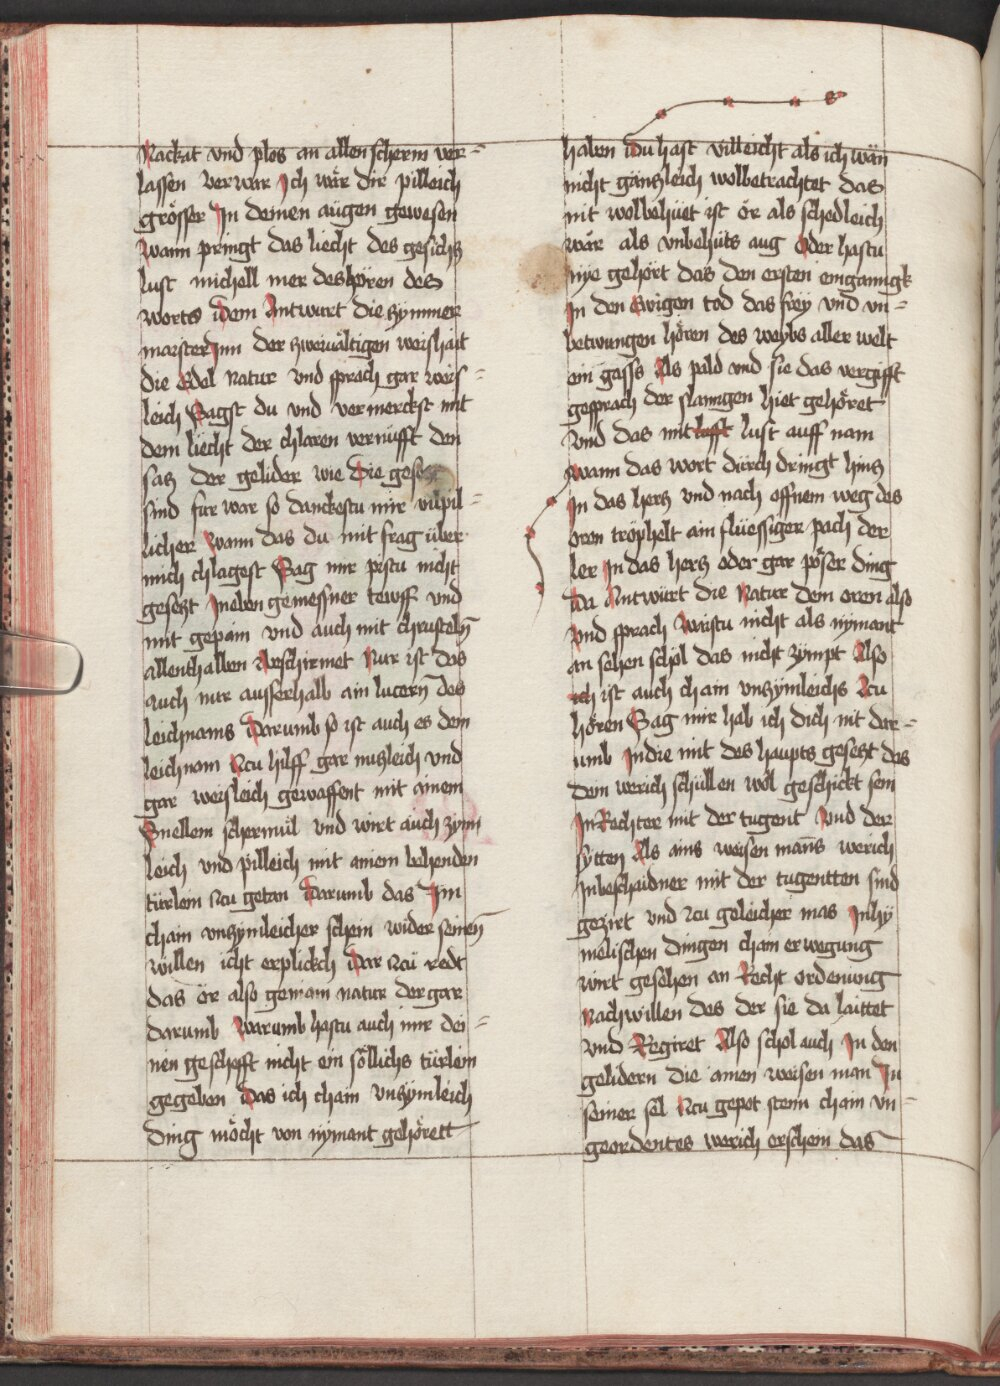 Nackat vnd plos an allen scherm ver-
lassen verwar Ich wär dir pilleich
grösser In deinen augen gewesen
Wann pringt das liecht des gesichtz
lust michell mer des hören des
worts Dem Antwurt die zymmer
maister Inn der zweiualtigen weishait
die Edel Natur vnd sprach gar weis-
leich Sagst du vnd vermerckst mit
dem liecht der chlaren vernüfft den
satz der gelider wie die gesetzt
sind fur war so danckestu mir vnpil-
licher Wann das du mit frag über
mich chlagest Sag mir pistu nicht
gesetzt In eben gemessner tewff vnd
mit gepain vnd auch mit chrusteln
allenthalben Beschirmet Nur ist das
auch mir ausserhalb ain lucern des
leichnams Darumb so ist auch es dem
leichnam Zcu hilff gar nutzleich vnd
gar weisleich gewaffent mit ainem
Snellem schermül vnd wirt auch zym
leich vnd pilleich mit ainem behenden
türlein Zcu getan Darumb das Im
chain vnzymleicher schein wider seinen
willen icht erplickch Dar Zcu redt
das ör also gemain natur der gar
darumb Warumb hastu auch mir dei-
nen geschefft nicht ein söllichs türlein
gegeben Das ich chain vnzymleich
Ding möcht von nymant gehörett
haben Du hast villeicht als ich wän
nicht gäntzleich wolbetrachtet das
nit wolbehüet ist ör als schedleich
wär als vnbehüts aug Oder hastu
nye gehört das den ersten eingannigk
In den Ewigen tod das frëy vnd vn-
betwungen hören des weybs aller welt
ein gass Als pald vnd sie das vergifft
gesprach der slanngen hiet gehöret
Vnd das mit lufft lust auff nam
Wann das wort durch dringt hintz
In das hertz vnd nach offnem weg des
oren tröphelt ain flüessiger pach der
ler In das hertz oder gar pöser ding
Da Antwürt die Natur dem oren also
Vnd sprach Waistu nicht als nymant
an sehen schol das nicht zympt Also
ich ist auch chain vnzymleichs Zcu
hören Sag mir hab ich dich nit dar-
umb In die mit des haupts gesetzt das
dem werich schüllen wol geschickt sein
In Rechter mit der tugent Vnd der
sytten Als ains weisen mans werich
In beschaidner mit der tugentten sind
geziert vnd Zcu geleicher mas In hy
melischen dingen chain erwegung
wirt gesehen an Recht ordenung
Nach willen des der sie da laittet
vnd Regiret Also schol auch In den
gelidern die ainen weisen man In
seiner sel Zcu gepot stenn chain vn-
geordentes werich erschein das